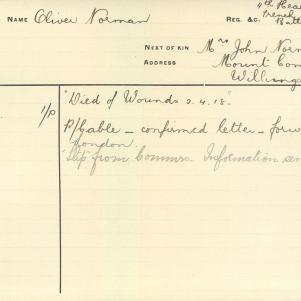 NAME Oliver Norman
REG. &C. 4th Hea
Trench
Batt
NEXT OF KIN Mrs John Norm
ADDRESS Mount Com
Willunga
1/P "Died of Wounds 2.4.18."
P/Cable – confirmed letter – forw
London.
"slip" from Commrs. Information sen